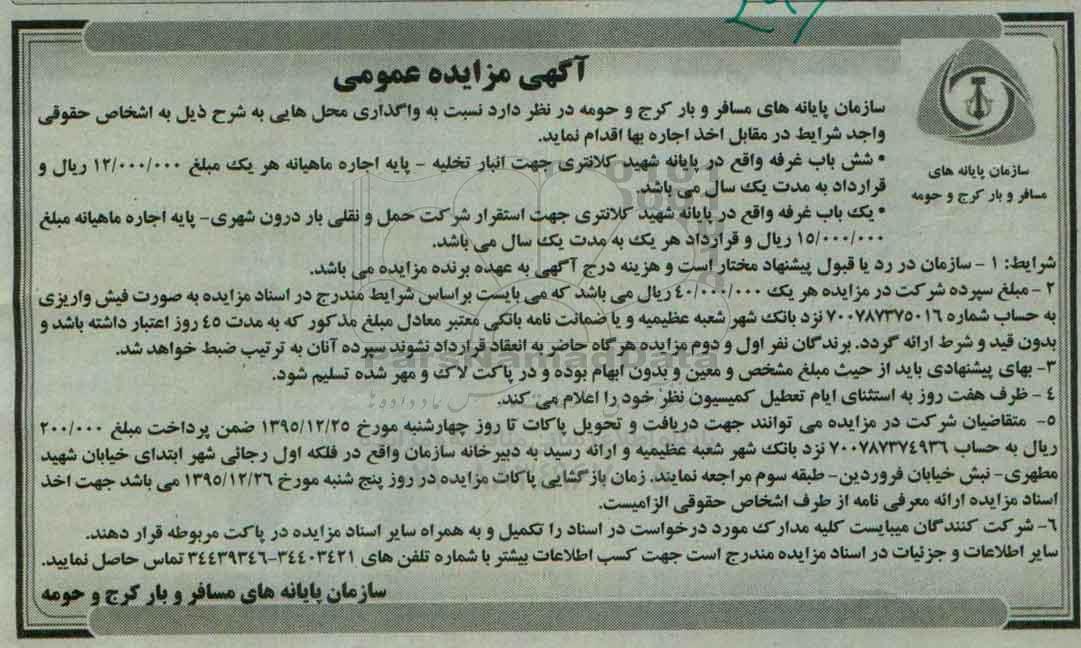 آگهی مزایده عمومی
سازمان پایانه های
مسافر و بار کرج و حومه
سازمان پایانه های مسافر و بار کرج و حومه در نظر دارد نسبت به واگذاری محل هایی به شرح ذیل به اشخاص حقوقی
واجد شرایط در مقابل اخذ اجاره بها اقدام نماید.
• شش باب غرفه واقع در پایانه شهید کلانتری جهت انبار تخلیه - پایه اجاره ماهیانه هر یک مبلغ ۱۲/۰۰۰/۰۰۰ ریال و
قرارداد به مدت یک سال می باشد.
• یک باب غرفه واقع در پایانه شهید کلانتری جهت استقرار شرکت حمل و نقلی بار درون شهری- پایه اجاره ماهیانه مبلغ
۱۵/۰۰۰/۰۰۰ ریال و قرارداد هر یک به مدت یک سال می باشد.
شرایط: ۱ - سازمان در رد یا قبول پیشنهاد مختار است و هزینه درج آگهی به عهده برنده مزایده می باشد.
۲ - مبلغ سپرده شرکت در مزایده هر یک ۴۰/۰۰۰/۰۰۰ ریال می باشد که می بایست براساس شرایط مندرج در اسناد مزایده به صورت فیش واریزی
به حساب شماره ۷۰۰۷۸۷۳۷۵۰۱۶ نزد بانک شهر شعبه عظیمیه و یا ضمانت نامه بانکی معتبر معادل مبلغ مذکور که به مدت ۴۵ روز اعتبار داشته باشد و
بدون قید و شرط ارائه گردد. برندگان نفر اول و دوم مزایده هرگاه حاضر به انعقاد قرارداد نشوند سپرده آنان به ترتیب ضبط خواهد شد.
۳- بهای پیشنهادی باید از حیث مبلغ مشخص و معین و بدون ابهام بوده و در پاکت لاک و مهر شده تسلیم شود.
۴ - ظرف هفت روز به استثنای ایام تعطیل کمیسیون نظر خود را اعلام می کند.
۵- متقاضیان شرکت در مزایده می توانند جهت دریافت و تحویل پاکات تا روز چهارشنبه مورخ ۱۳۹۵/۱۲/۲۵ ضمن پرداخت مبلغ ۲۰۰/۰۰۰
ریال به حساب ۷۰۰۷۸۷۳۷۴۹۳۶ نزد بانک شهر شعبه عظیمیه و ارائه رسید به دبیرخانه سازمان واقع در فلکه اول رجائی شهر ابتدای خیابان شهید
مطهری- نبش خیابان فروردین- طبقه سوم مراجعه نمایند. زمان بازگشایی پاکات مزایده در روز پنج شنبه مورخ ۱۳۹۵/۱۲/۲۶ می باشد جهت اخذ
اسناد مزایده ارائه معرفی نامه از طرف اشخاص حقوقی الزامیست.
۶- شرکت کنندگان میبایست کلیه مدارک مورد درخواست در اسناد را تکمیل و به همراه سایر اسناد مزایده در پاکت مربوطه قرار دهند.
سایر اطلاعات و جزئیات در اسناد مزایده مندرج است جهت کسب اطلاعات بیشتر با شماره تلفن های ۳۴۴۰۳۴۲۱-۳۴۴۳۹۳۴۶ تماس حاصل نمایید.
سازمان پایانه های مسافر و بار کرج و حومه
ParsNamadData